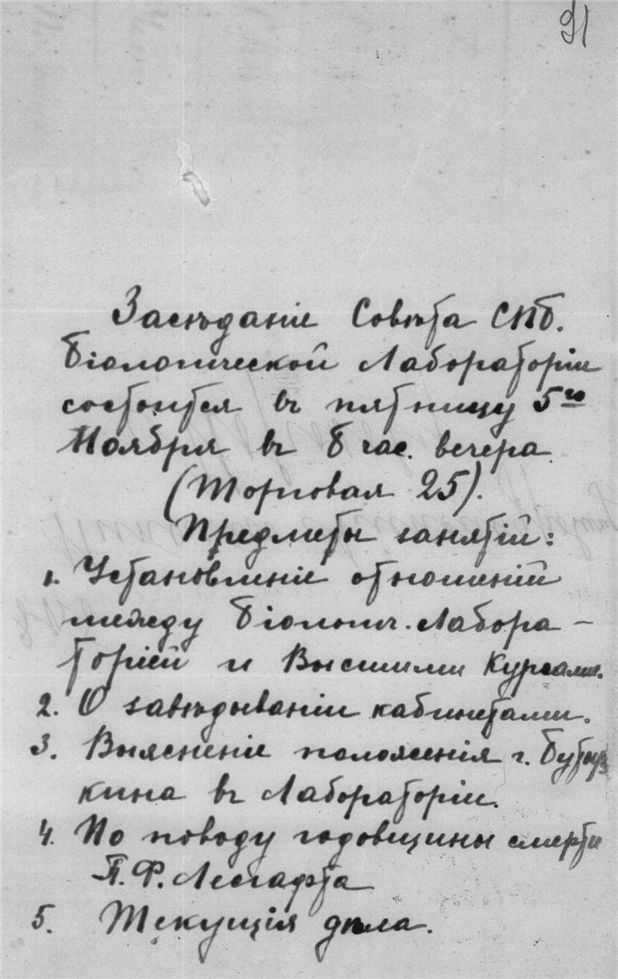 91
Засѣданіе Совѣта СПб.
Біологической Лабораторіи
состоится въ пятницу 5го
Ноября въ 8 час. вечера
(Торговая 25).
Предметы занятій:
1. Установленіе отношеній
между Біологич. Лабора-
торіей и Высшими Курсами.
2. О завѣдываніи кабинетами.
3. Выясненіе положенія г.
кина въ Лабораторіи.
4. По поводу годовщины смерти
П. Ф. Лесгафта
5. Текущія дѣла.